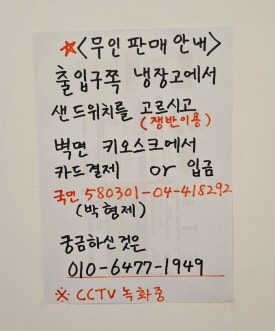 ☆<무인 판매 안내>
출입구쪽 냉장고에서
샌드위치를 고르시고
(쟁반이용)
벽면 키오스크에서
카드결제 or 입금
국민 580301-04-418292
(박형제)
궁금하신것은
010-6477-1949
※ CCTV 녹화중